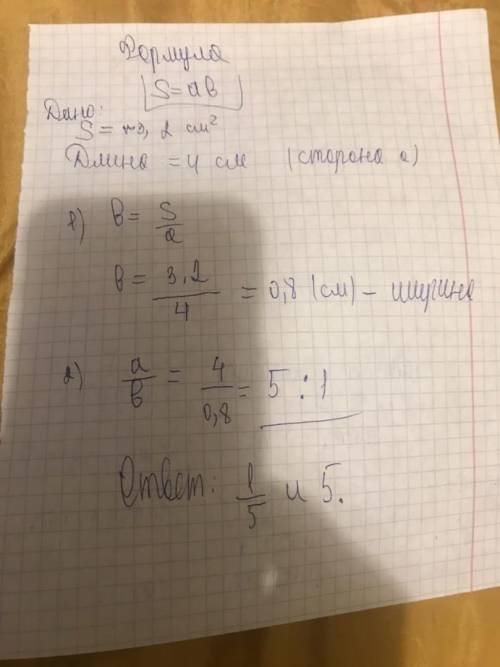 Формула
S=ab
Дано:
S = 3,2 см²
Длина = 4 см (сторона a)
1) b = S/a
b = 3.2/4 = 0,8 (см) – ширина
2) a/b = 4/0,8 = 5 : 1
Ответ: 1/5 и 5.